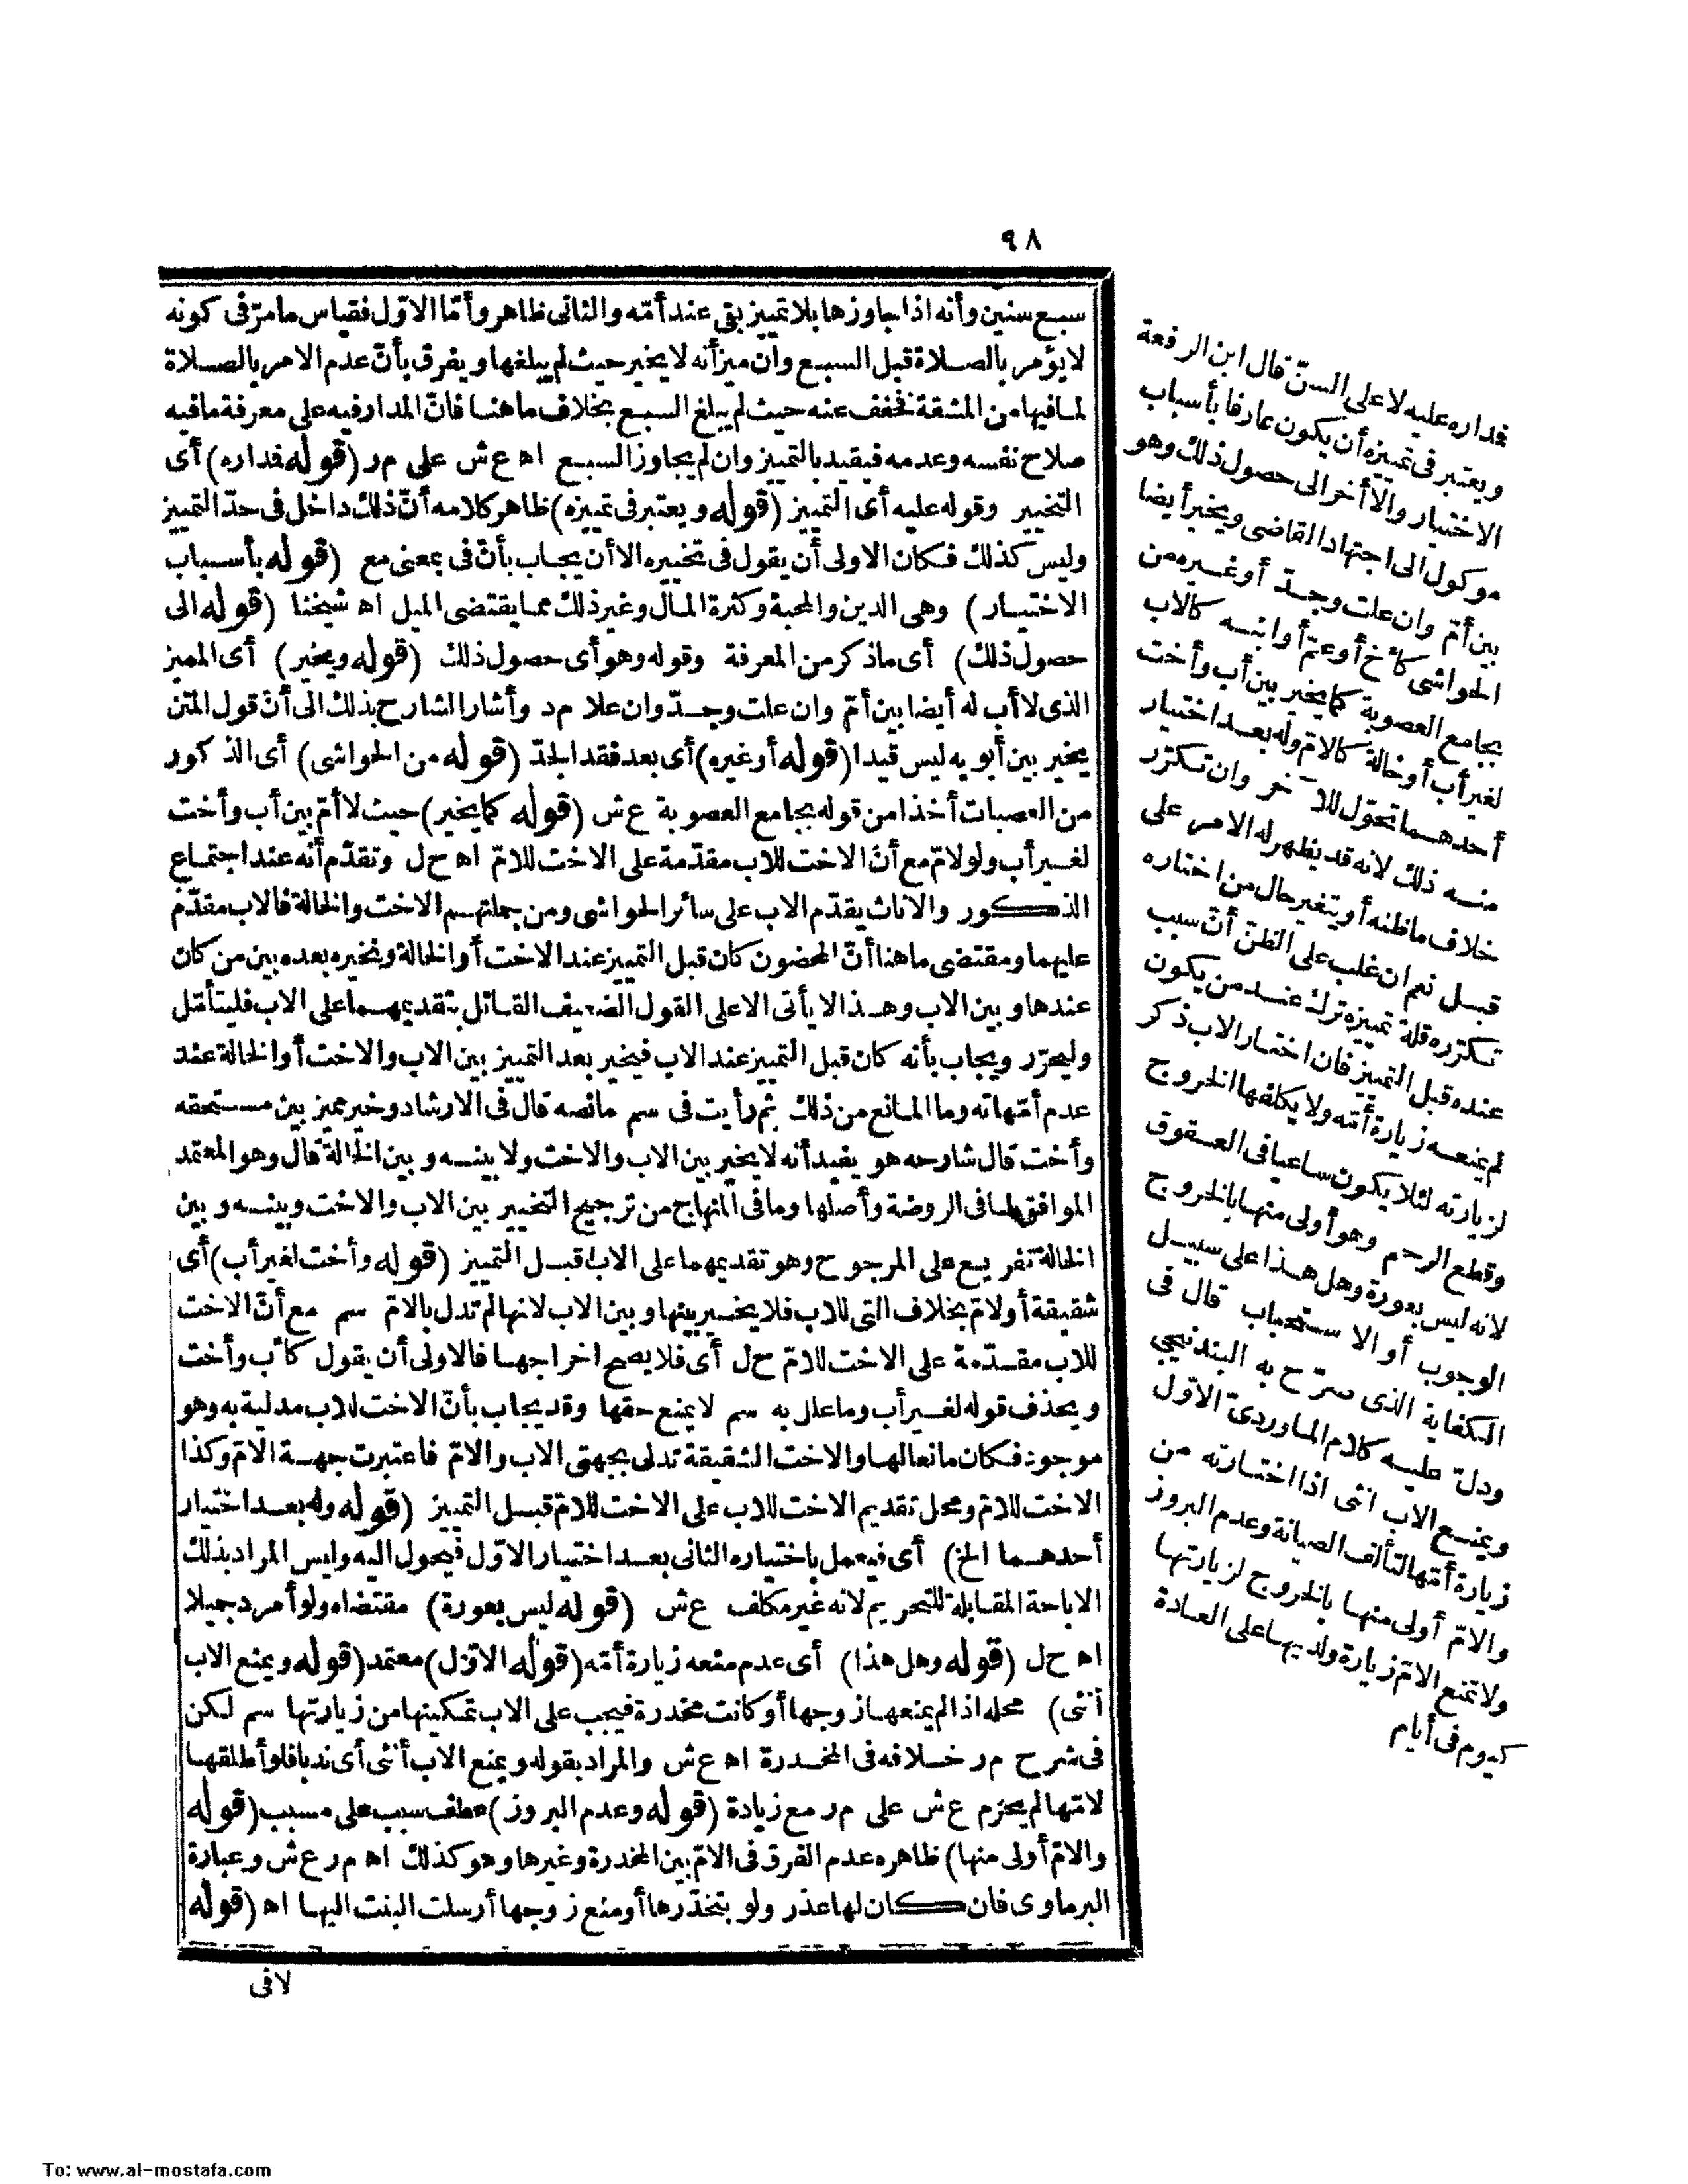 ٩٨
سبع سنين وأنه اذا جاوزها بلا تمييز بقى عند أمّه والثانى ظاهر وأمّا الاوّل فقياس مامرّ فى كونه
لا يؤمر بالصلاة قبل السبع وان ميز أنه لا يخير حيث لم يبلغها ويفرق بأنّ عدم الامر بالصلاة
لما فيها من المشقة فخفف عنه حيث لم يبلغ السبع بخلاف ما هنا فانّ المدار فيه على معرفة ما فيه
صلاح نفسه وعدمه فيقيد بالتمييز وان لم يجاوز السبع اه ع ش على م ر (قوله فداره) أى
التخيير وقوله عليه أى التمييز (قوله ويعتبر فى تمييزه) ظاهر كلامه أنّ ذلك داخل فى حدّ التمييز
وليس كذلك فكان الاولى أن يقول فى تخييره الا أن يجاب بأنّ فى بمعنى مع (قوله بأسباب
الاختيار) وهى الدين والمحبة وكثرة المال وغير ذلك مما يقتضى الميل اه شيخنا (قوله الى
حصول ذلك) أى ماذكر من المعرفة وقوله وهو أى حصول ذلك (قوله ويخير) أى المميز
الذى لا أب له أيضا بين أمّ وان علت وجدّ وان علا م د وأشار الشارح بذلك الى أنّ قول المتن
يخير بين أبويه ليس قيدا (قوله أو غيره) أى بعد فقد الجدّ (قوله من الحواشى) أى الذكور
من العصبات أخذا من قوله بجامع العصوبة ع ش (قوله كما يخير) حيث لا أمّ بين أب وأخت
لغير أب ولو لامّ مع أنّ الاخت للاب مقدّمة على الاخت للامّ اه ح ل وتقدّم أنه عند اجتماع
الذكور والاناث يقدّم الاب على سائر الحواشى ومن جملتهم الاخت والخالة فالاب مقدّم
عليهما ومقتضى ما هنا أنّ المحضون كان قبل التمييز عند الاخت أو الخالة ونخيره بعده بين من كان
عندها وبين الاب وهذا لا يأتى الا على القول الضعيف القائل بتقديمهما على الاب فليتأمّل
وليحرّر ويجاب بأنه كان قبل التمييز عند الاب فيخير بعد التمييز بين الاب والاخت أو الخالة عند
عدم أمّهاته وما المانع من ذلك ثم رأيت فى سم مانصه قال فى الارشاد وخير مميز بين مستحقه
وأخت قال شارحه هو يفيد أنه لا يخير بين الاب والاخت ولا بينه وبين الخالة قال وهو المعتمد
الموافق لما فى الروضة وأصلها وما فى المنهاج من ترجيح التخيير بين الاب والاخت وبينه وبين
الخالة تفريع على المرجوح وهو تقديمهما على الاب قبل التمييز (قوله وأخت لغير أب) أى
شقيقة أو لامّ بخلاف التى للاب فلا يخير بينها وبين الاب لانها لم تدل بالامّ سم مع أنّ الاخت
للاب مقدّمة على الاخت للامّ ح ل أى فلا يصح اخراجها فالاولى أن يقول كأب وأخت
ويحذف قوله لغير أب وما علل به سم لا يمنع حقها وقد يجاب بأنّ الاخت للاب مدلية به وهو
موجود فكان مانعا لها والاخت الشقيقة تدلى بجهتى الاب والامّ فاعتبرت جهة الامّ وكذا
الاخت للامّ ومحل تقديم الاخت للاب على الاخت للامّ قبل التمييز (قوله وله بعد اختيار
أحدهما الخ) أى فيعمل باختياره الثانى بعد اختيار الاوّل فيحول اليه وليس المراد بذلك
الاباحة المقابلة للتحريم لانه غير مكلف ع ش (قوله ليس بعورة) مقتضاه ولو أمرد جميلا
اه ح ل (قوله وهل هذا) أى عدم منعه زيارة أمّه (قوله الاوّل) معتمد (قوله ويمنع الاب
أنثى) محله اذا لم يمنعها زوجها أو كانت مخدرة فيجب على الاب تمكينها من زيارتها سم لكن
فى شرح م ر خلافه فى المخدرة اه ع ش والمراد بقوله ويمنع الاب أنثى أى ندبا فلو أطلقها
لامّها لم يحرم ع ش على م ر مع زيادة (قوله وعدم البروز) عطف سبب على مسبب (قوله
والامّ أولى منها) ظاهره عدم الفرق فى الامّ بين المخدرة وغيرها وهو كذلك اه م ر ع ش وعبارة
البرماوى فان كان لها عذر ولو بتخدّرها أو منع زوجها أرسلت البنت اليها اه (قوله
لا فى
فمداره عليه لا على السنّ قال ابن الرفعة
ويعتبر فى تمييزه أن يكون عارفا بأسباب
الاختيار والا أخر الى حصول ذلك وهو
موكول الى اجتهاد القاضى ويخير أيضا
بين أمّ وان علت وجدّ أو غيره من
الحواشى كأخ أو عمّ أو ابنه كالاب
بجامع العصوبة كما يخير بين أب وأخت
لغير أب أو خالة كالامّ وله بعد اختيار
أحدهما تحوّل للآخر وان تكرّر
منه ذلك لانه قد يظهر له الامر على
خلاف ما ظنه أو يتغير حال من اختاره
قبل نعم ان غلب على الظنّ أنّ سبب
تكرّره قلة تمييزه ترك عند من يكون
عنده قبل التمييز فان اختار الاب ذكر
لم يمنعه زيارة أمّه ولا يكلفها الخروج
لزيارته لئلا يكون ساعيا فى العقوق
وقطع الرحم وهو أولى منها بالخروج
لانه ليس بعورة وهل هذا على سبيل
الوجوب أو الاستحباب قال فى
الكفاية الذى صرّح به البندنيجى
ودلّ عليه كلام الماوردىّ الاوّل
ويمنع الاب أنثى اذا اختارته من
زيارة أمّها لتألف الصيانة وعدم البروز
والامّ أولى منها بالخروج لزيارتها
ولا تمنع الامّ زيارة ولديها على العادة
كيوم فى أيام
To: www.al-mostafa.com